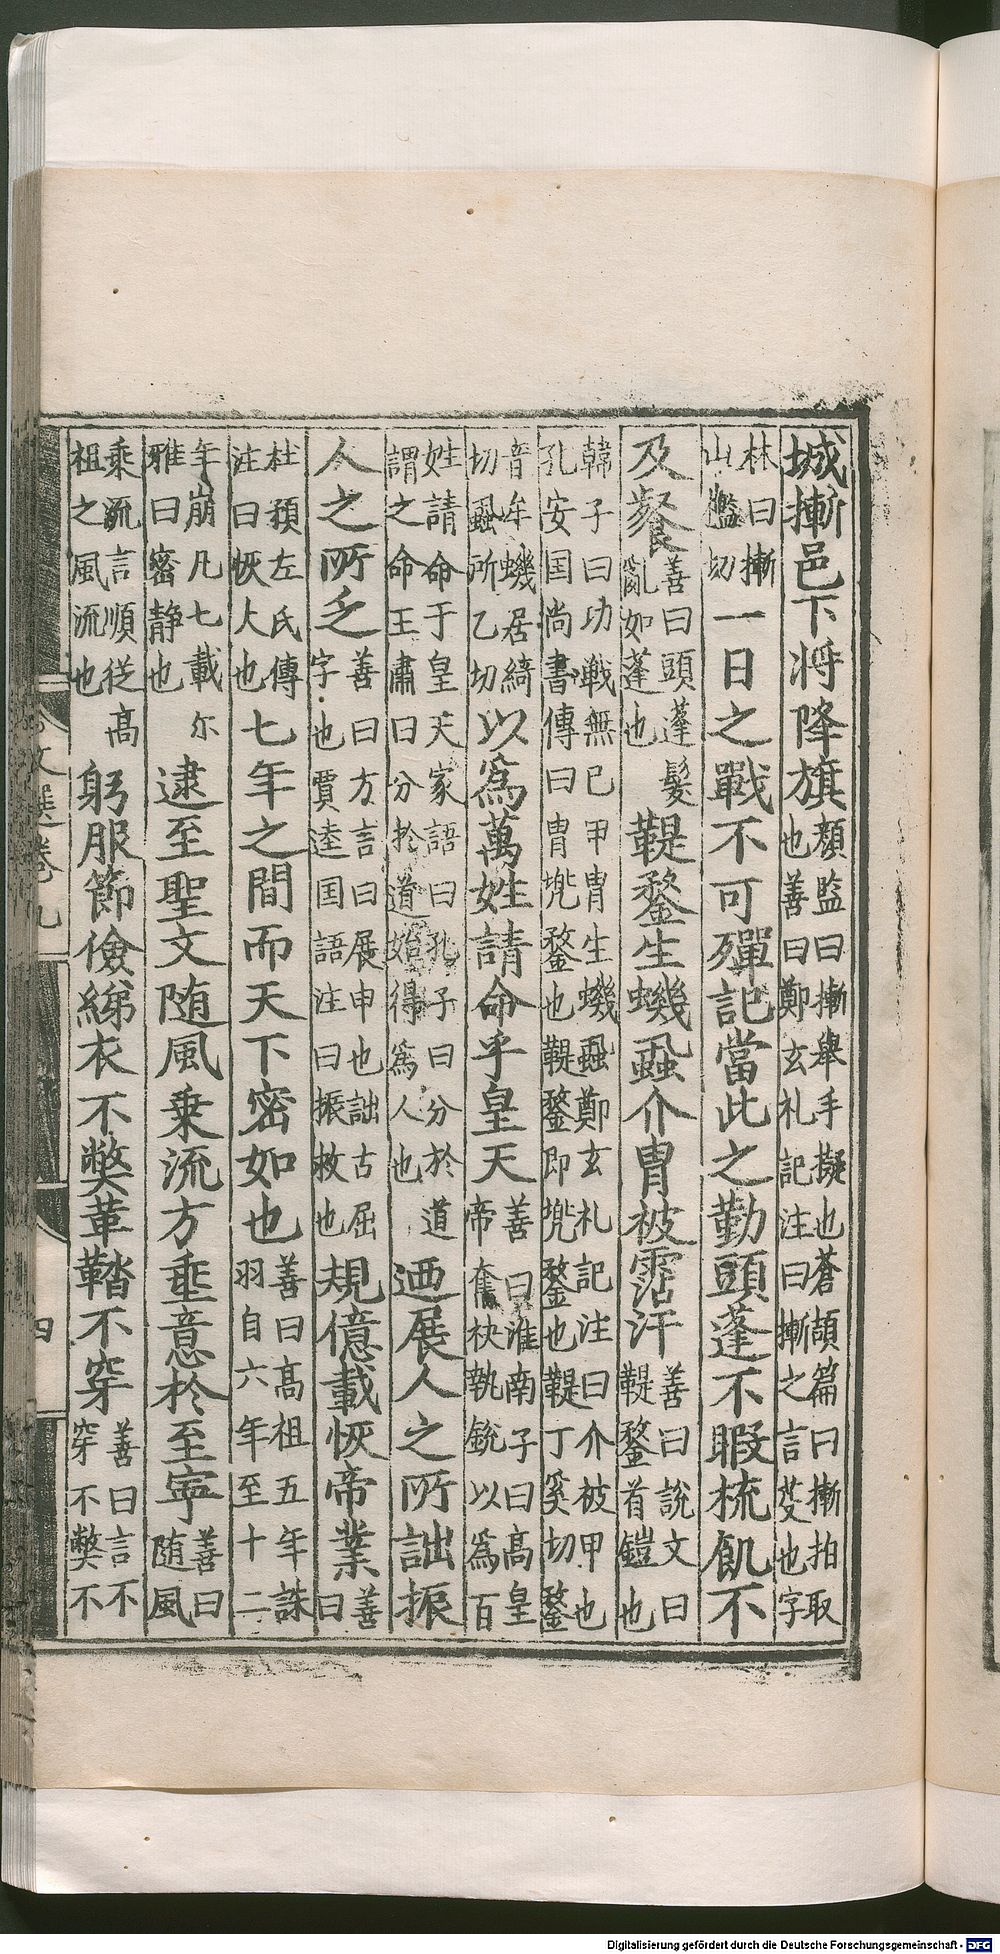 城摲邑下將降旗顏監曰摲舉手擬也蒼頡篇曰摲拍取也善曰鄭玄礼記注曰摲之言芟也字
林曰摲山檻切一日之戰不可殫記當此之勤頭蓬不暇梳飢不
及餐善曰頭蓬髮亂如蓬也鞮鍪生蟣蝨介冑被霑汗善曰說文曰鞮鍪首鎧也
韓子曰功戰無已甲冑生蟣蝨鄭玄礼記注曰介被甲也孔安国尚書傳曰冑兠鍪也鞮鍪即兠鍪也鞮丁奚切鍪
音牟蟣居綺切蝨所乙切以爲萬姓請命乎皇天善曰淮南子曰高皇帝奮袂執銳以爲百
姓請命于皇天家語曰孔子曰分於道謂之命王肅曰分扵道始得爲人也迺展人之所詘振
人之所乏善曰方言曰展申也詘古屈字也賈逵国語注曰振救也規億載恢帝業善曰
杜預左氏傳注曰恢大也七年之間而天下密如也善曰高祖五年誅羽自六年至十二
年崩凡七載尓雅曰密静也逮至聖文随風乗流方垂意扵至寧善曰随風
乘流言順從高祖之風流也躬服節儉綈衣不獘革鞜不穿善曰言不穿不獘不
文選卷九
四
Digitalisierung gefördert durch die Deutsche Forschungsgemeinschaft - DFG